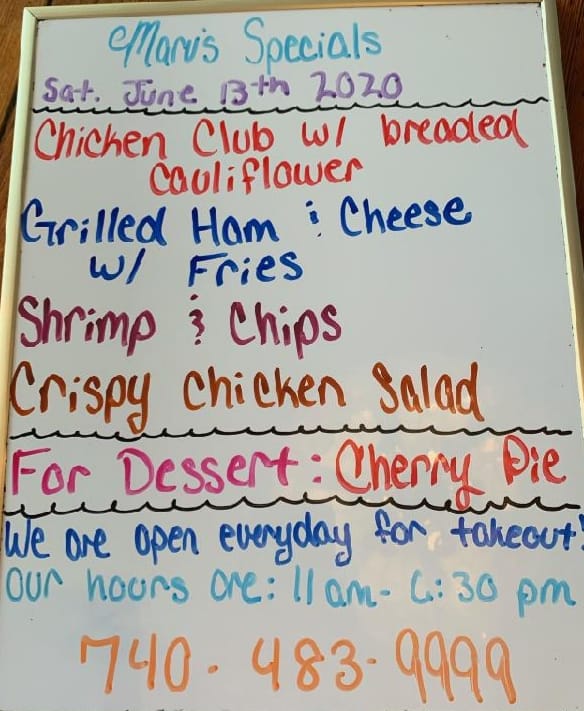 Marv's Specials
Sat. June 13th 2020
Chicken Club w/ breaded
cauliflower
Grilled Ham & Cheese
w/ Fries
Shrimp & Chips
Crispy chicken Salad
For Dessert: Cherry Pie
We are open everyday for takeout!
Our hours are: 11am-6:30 pm
740-483-9999